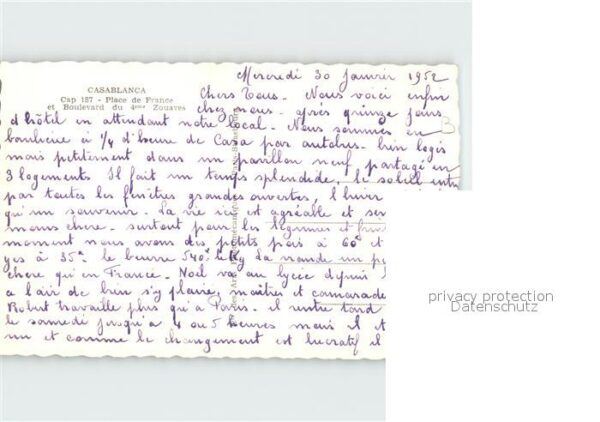 Mercredi 30 Janvier 1952
CASABLANCA
Cap 187 - Place de France
et Boulevard du 4eme Zouaves
Chers Tous. Nous voici enfin
chez nous. après quinze jours
d'hôtel en attendant notre local. Nous sommes en
banlieue à 1/4 d'heure de Casa par autobus. bien logés
mais petitement dans un pavillon neuf partagé en
3 logements Il fait un temps splendide. le soleil
par toutes les fenêtres grandes ouvertes, l'hiver
qu'un souvenir. La vie ici est agréable et
moins chère. surtout pour les légumes et
moment nous avons des petits pois à 60f et
à 35f. le beurre 540f le kg La viande un
chère qu'en France. Noël va au lycée depuis
a l'air de bien s'y plaire, maîtres et camarade
Robert travaille plus qu'à Paris. il rentre tard
le samedi jusqu'à 4 ou 5 heures mais il
et comme le changement est lucratif il
privacy protection
Datenschutz